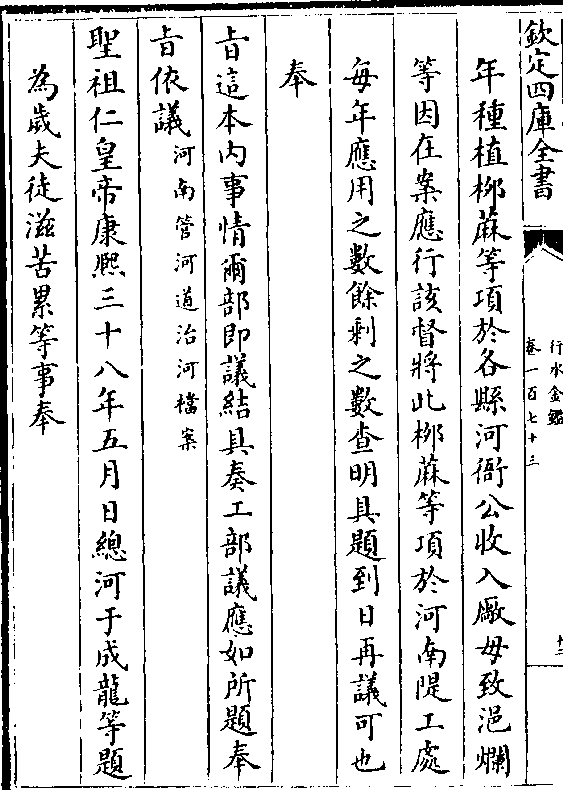 欽定四庫全書
行水金鑑
卷一百七十三
十二
年種植栁蔴等項於各縣河衙公收入厰毋致浥爛
等因在案應行該督將此栁蔴等項於河南隄工處
每年應用之數餘剩之數查明具題到日再議可也
奉
㫖這本内事情爾部即議結具奏工部議應如所題奉
㫖依議河南管河道治河檔案
聖祖仁皇帝康熙三十八年五月日總河于成龍等題
為歲夫徒滋苦累等事奉